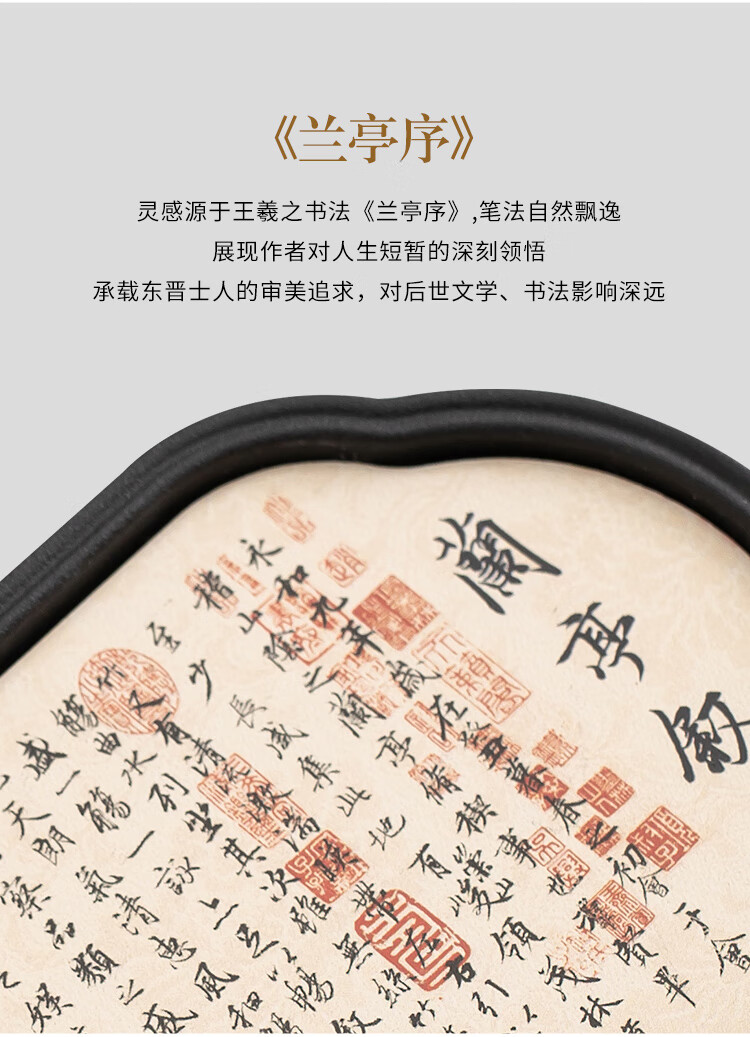 《兰亭序》
灵感源于王羲之书法《兰亭序》,笔法自然飘逸
展现作者对人生短暂的深刻领悟
承载东晋士人的审美追求，对后世文学、书法影响深远
蘭亭敘
永和九年歲在癸丑暮春之初會于會
稽山陰之蘭亭脩稧事也群賢畢
至少長咸集此地有崇山峻領茂林
竹又有清流激湍暎帶左右引
觴曲水列坐其次雖無絲竹
盛一觴一詠亦足以暢敘
天朗氣清惠風和暢
察品類之盛